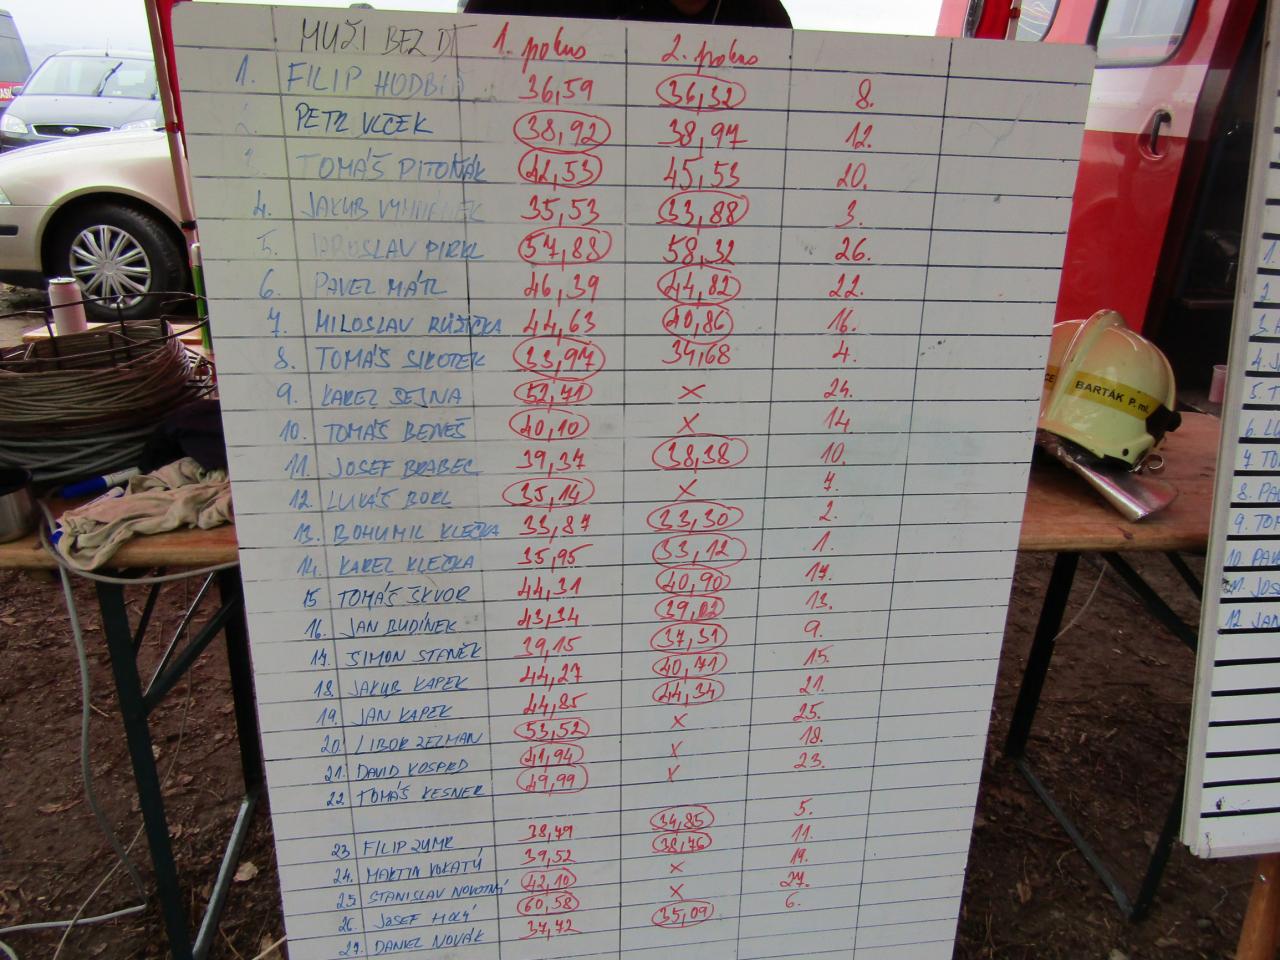 MUŽI BEZ DT 1. pokus 2. pokus
1. FILIP HODBIŇ 36,59 36,32 8.
2. PETR VLČEK 38,92 38,97 12.
3. TOMÁŠ PITOŇÁK 42,53 45,53 20.
4. JAKUB 35,53 33,88 3.
5. JAROSLAV PIRKL 57,88 58,32 26.
6. PAVEL MÁTL 46,39 44,82 22.
7. MILOSLAV RŮŽIČKA 44,63 40,86 16.
8. TOMÁŠ SIKOTEK 33,97 34,68 4.
9. KAREL SEJNA 52,71 x 24.
10. TOMÁŠ BENEŠ 40,10 x 14.
11. JOSEF BRABEC 39,37 38,38 10.
12. LUKÁŠ BORL 35,14 x 7.
13. BOHUMIL KLEČKA 33,87 33,30 2.
14. KAREL KLEČKA 35,95 33,12 1.
15 TOMÁŠ SKVOR 44,31 40,90 17.
16. JAN BUDÍNEK 43,34 39,02 13.
17. SIMON STANĚK 39,15 37,31 9.
18. JAKUB KAPEK 44,27 40,71 15.
19. JAN KAPEK 44,85 44,34 21.
20. LIBOR ZEZMAN 53,52 x 25.
21. DAVID KOSPRD 41,94 x 18.
22 TOMÁŠ KESNER 49,99 x 23.
23 FILIP ZUMR 38,79 34,85 5.
24. MARTIN VOKATÝ 39,52 38,76 11.
25 STANISLAV NOVOTNÝ 42,10 x 19.
26. JOSEF HOLÝ 60,58 x 27.
27. DANIEL NOVÁK 37,72 35,09 6.
BARTÁK P. ml.
1.
2.
3.
4. J
5. T
6. LU
7 TO
8. PA
9. TO
10. PAV
11. JOS
12 JAN